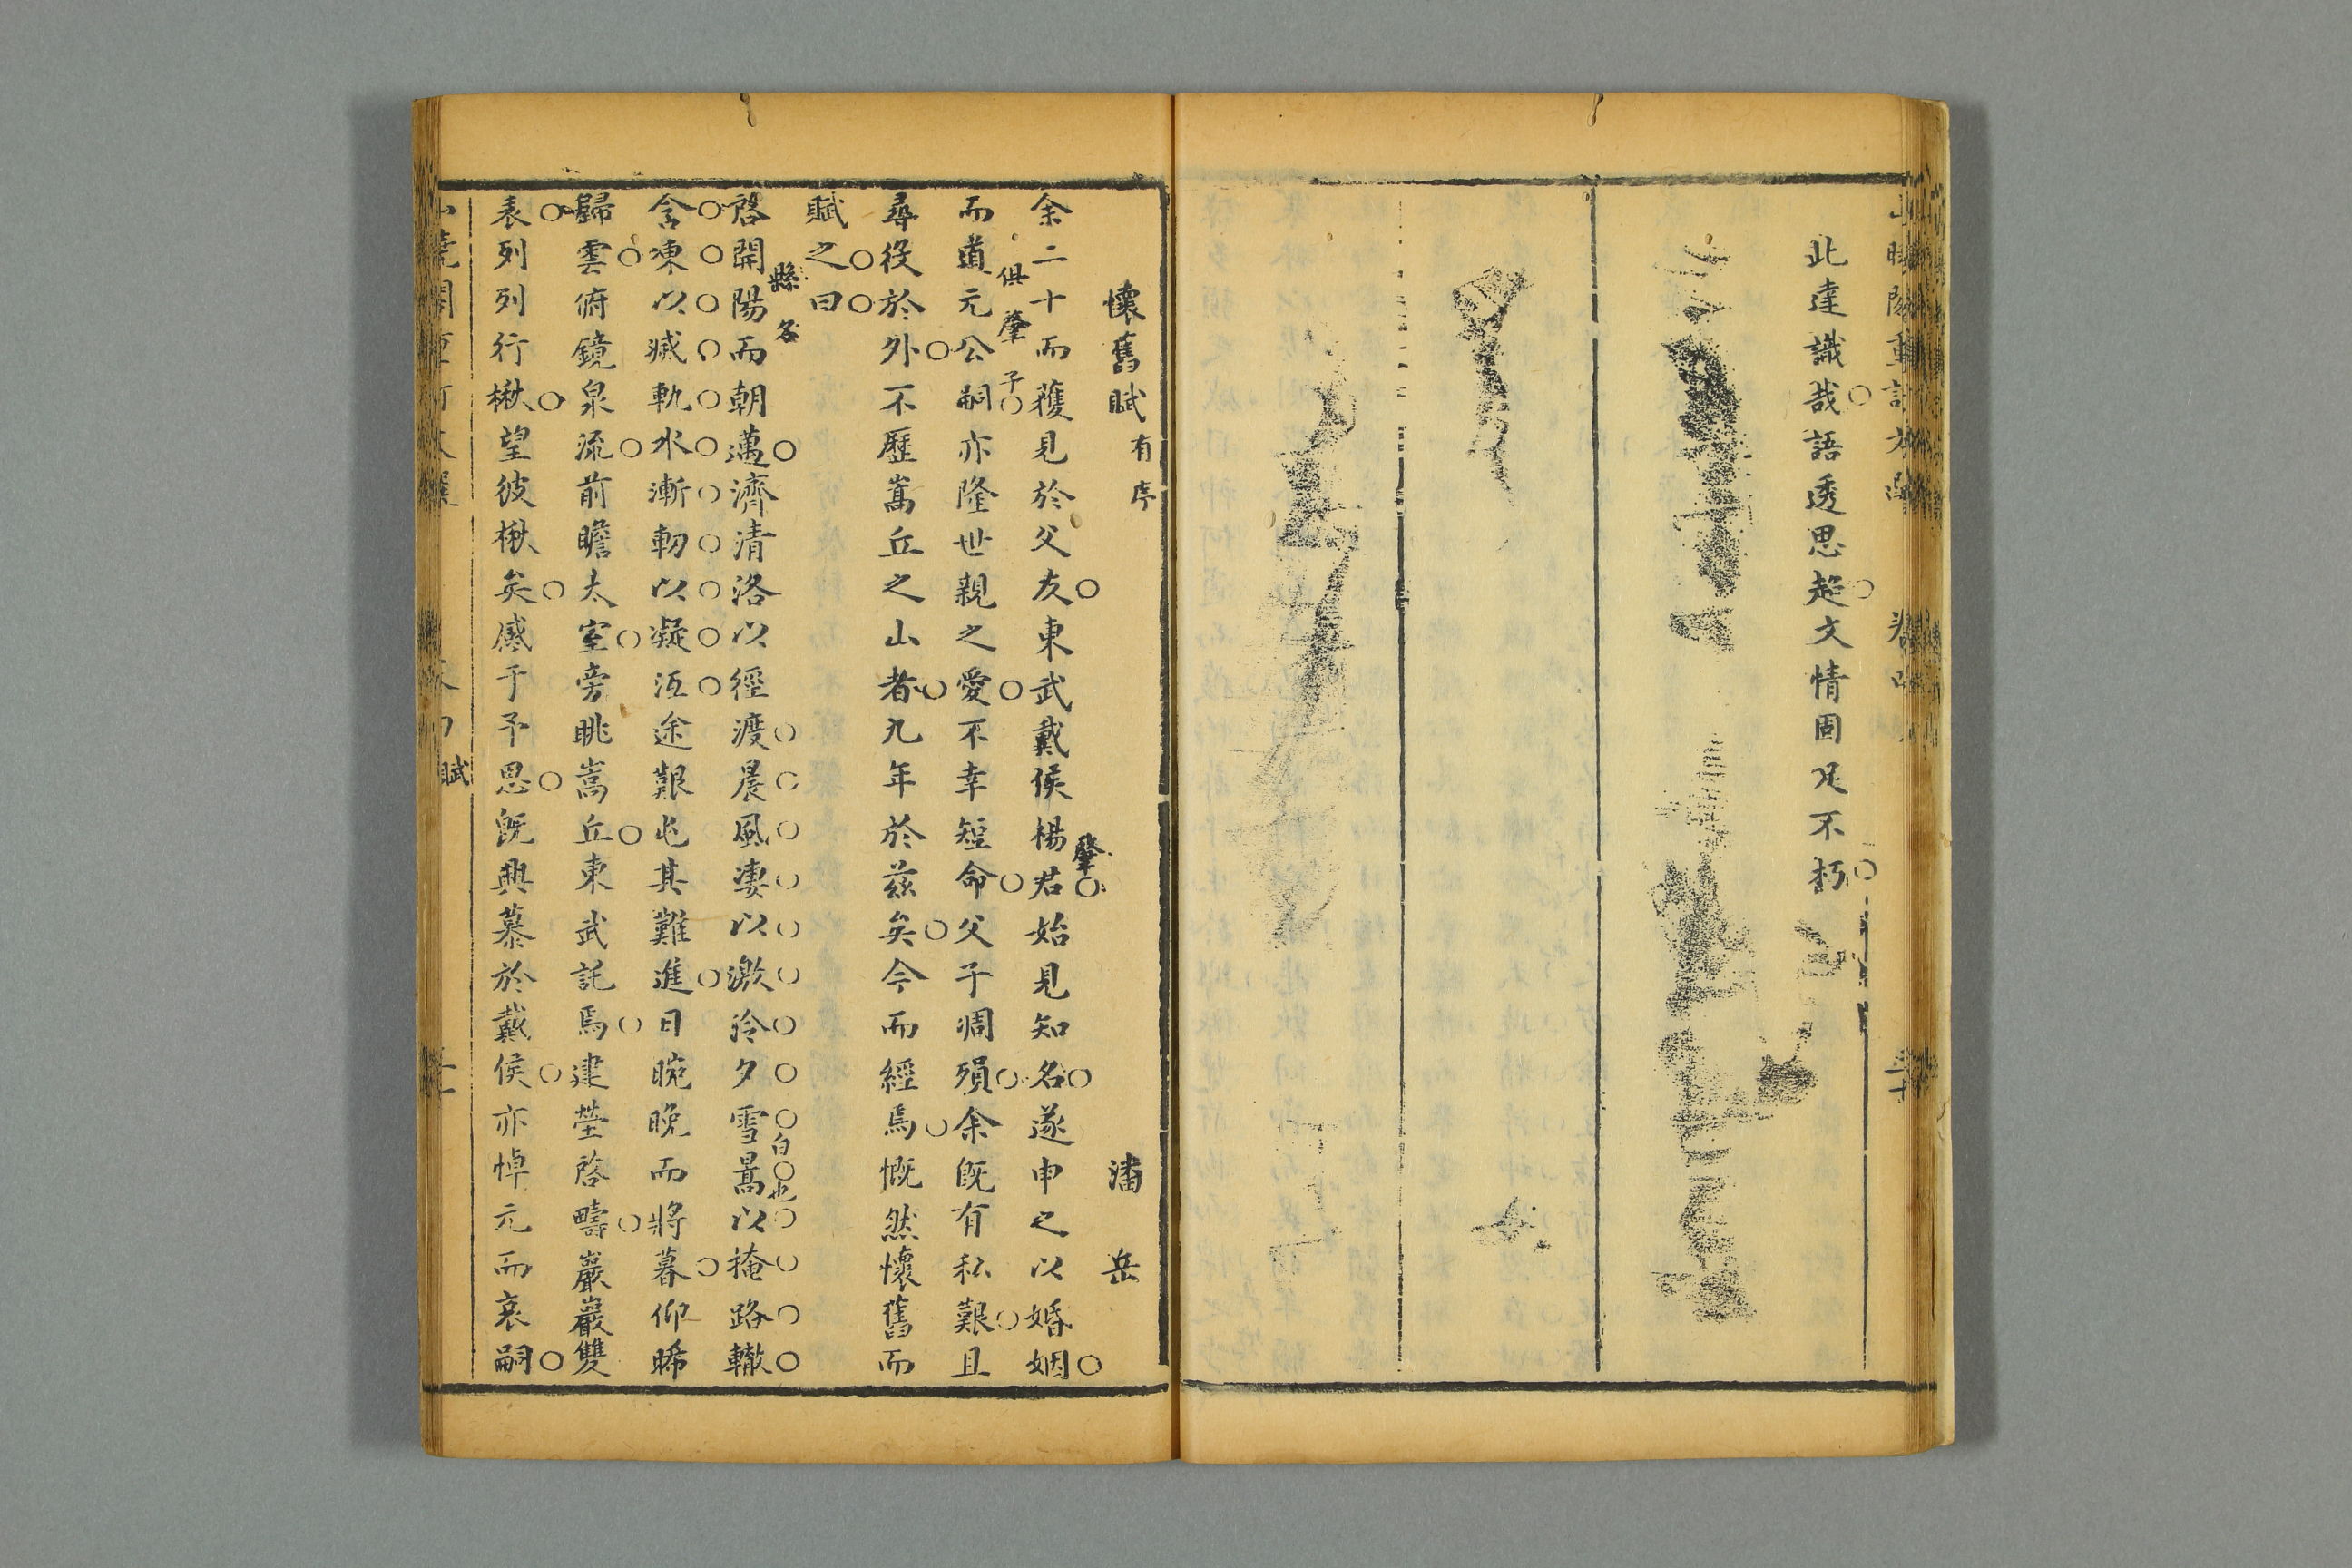 此達識哉語透思超文情固足不朽
懷舊賦有序 潘岳
余二十而獲見於父友東武戴侯楊君肇始見知名遂申之以婚姻
而道元公嗣俱肇子亦隆世親之愛不幸短命父子凋殞余既有私艱且
尋役於外不歷嵩丘之山者九年於茲矣今而經焉慨然懷舊而
賦之曰
啓開陽縣名而朝邁濟清洛以徑渡晨風淒以激冷夕雪暠白也以掩路轍
含凍以滅軌水漸軔以凝沍途艱屯其難進日晼晚而將暮仰晞
歸雲俯鏡泉流前瞻太室旁眺嵩丘東武託焉建塋啓疇巖巖雙
表列列行楸望彼楸矣感于予思既興慕於戴侯亦悼元而哀嗣
賦